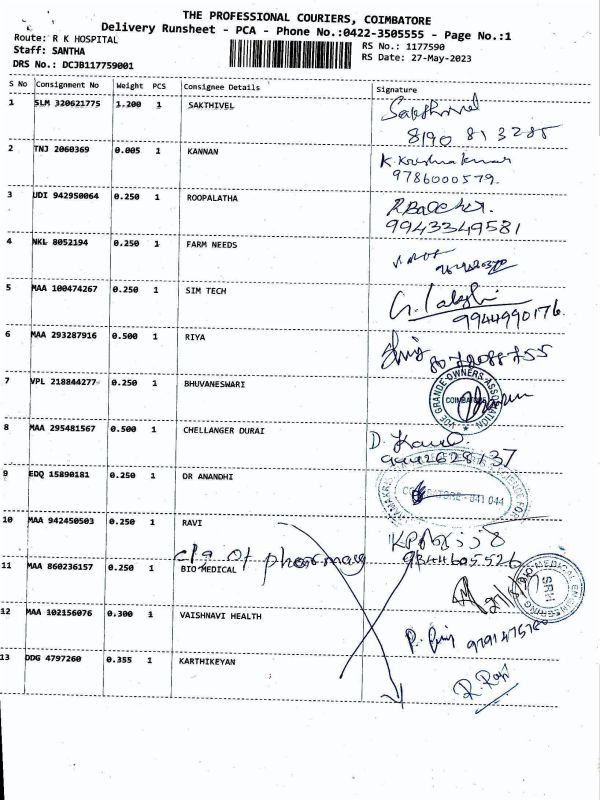 THE PROFESSIONAL COURIERS, COIMBATORE
Delivery Runsheet - PCA - Phone No.:0422-3505555 - Page No.:1
Route: R K HOSPITAL
Staff: SANTHA
DRS No.: DCJB117759001
RS No.: 1177590
RS Date: 27-May-2023
S No Consignment No Weight PCS Consignee Details Signature
1 SLM 320621775 1.200 1 SAKTHIVEL Sakthivel
8190 813285
2 TNJ 2060369 0.005 1 KANNAN K. Krishnakumar
9786000579.
3 UDI 942950064 0.250 1 ROOPALATHA
9943349581
4 NKL 8052194 0.250 1 FARM NEEDS
5 MAA 100474267 0.250 1 SIM TECH
9944990176.
6 MAA 293287916 0.500 1 RIYA
7 VPL 218844277 0.250 1 BHUVANESWARI
GRANDE OWNERS ASSOCIATION
COIMBATORE
8 MAA 295481567 0.500 1 CHELLANGER DURAI
9442628137
9 EDQ 15890181 0.250 1 DR ANANDHI
COIMBATORE - 641 044
10 MAA 942450503 0.250 1 RAVI
clg of pharmacy
9344605526
11 MAA 860236157 0.250 1 BIO MEDICAL
BIO-MEDICAL ENGINEERING
SRH
12 MAA 102156076 0.300 1 VAISHNAVI HEALTH
13 DDG 4797260 0.355 1 KARTHIKEYAN
R. Ravi